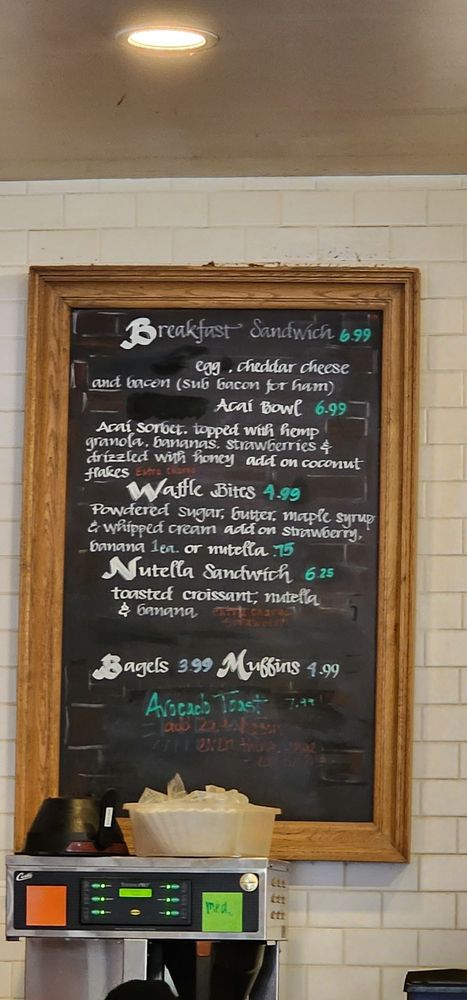 Breakfast Sandwich 6.99
egg, cheddar cheese
and bacon (sub bacon for ham)
Acai Bowl 6.99
Acai Sorbet, topped with hemp
granola, bananas, strawberries &
drizzled with honey add on coconut
flakes Extra Charge
Waffle Bites 4.99
Powdered sugar, butter, maple syrup
& whipped cream add on strawberry,
banana 1ea. or nutella .75
Nutella Sandwich 6.25
toasted croissant; nutella
& banana extra charge
strawberry
Bagels 3.99 Muffins 4.99
Avocado Toast 7.99
add
Curtis
med.